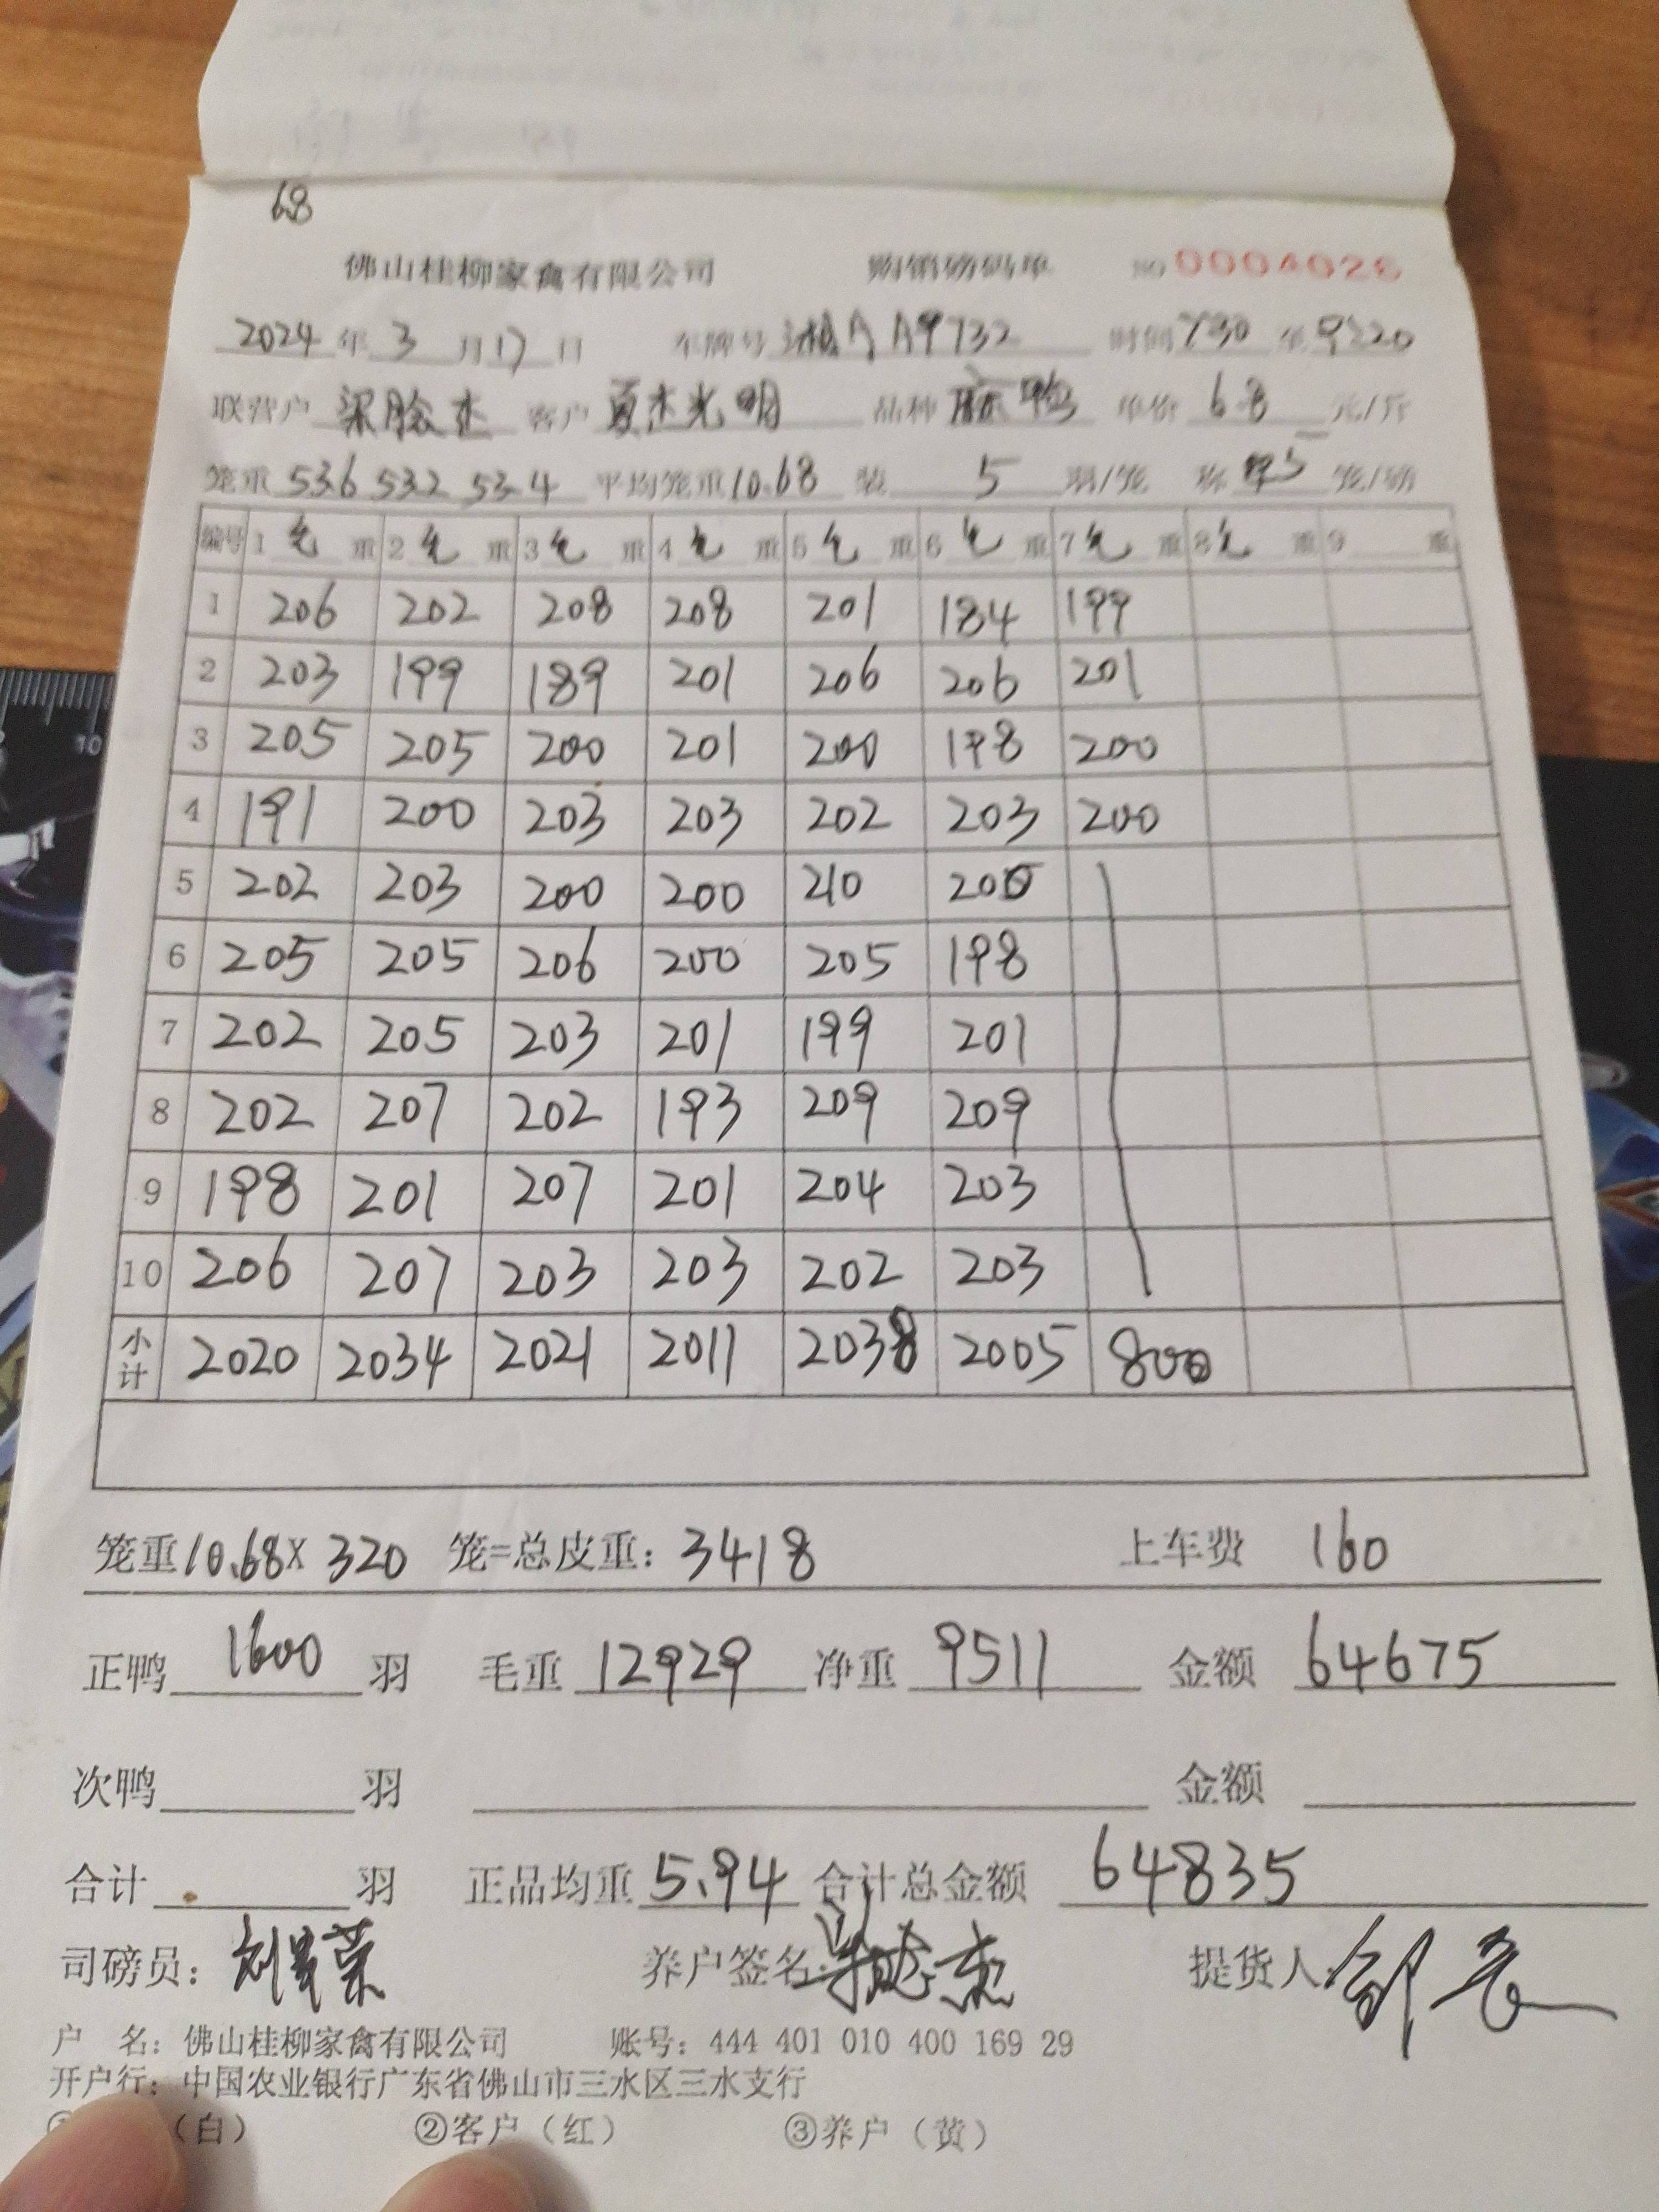 68
佛山桂柳家禽有限公司 购销磅码单 NO 0004026
2024 年 3 月 17 日 车牌号 湘A A9732 时间 730 至 9:20
联营户 客户 夏杰光明 品种 麻鸭 单价 6.8 元/斤
笼重 536 532 534 平均笼重 10.68 装 5 羽/笼 称 5 笼/磅
编号 1 毛 重 2 毛 重 3 毛 重 4 毛 重 5 毛 重 6 毛 重 7 毛 重 8 毛 重 9 重
1 206 202 208 208 201 184 199
2 203 199 189 201 206 206 201
3 205 205 200 201 200 198 200
4 191 200 203 203 202 203 200
5 202 203 200 200 210 200
6 205 205 206 200 205 198
7 202 205 203 201 199 201
8 202 207 202 193 209 209
9 198 201 207 201 204 203
10 206 207 203 203 202 203
小计 2020 2034 2021 2011 2038 2005 800
笼重 10.68 X 320 笼=总皮重: 3418 上车费 160
正鸭 1600 羽 毛重 12929 净重 9511 金额 64675
次鸭 羽 金额
合计 羽 正品均重 5.94 合计总金额 64835
司磅员: 养户签名: 提货人:
户 名: 佛山桂柳家禽有限公司 账号: 444 401 010 400 169 29
开户行: 中国农业银行广东省佛山市三水区三水支行
(白) ②客户(红) ③养户(黄)